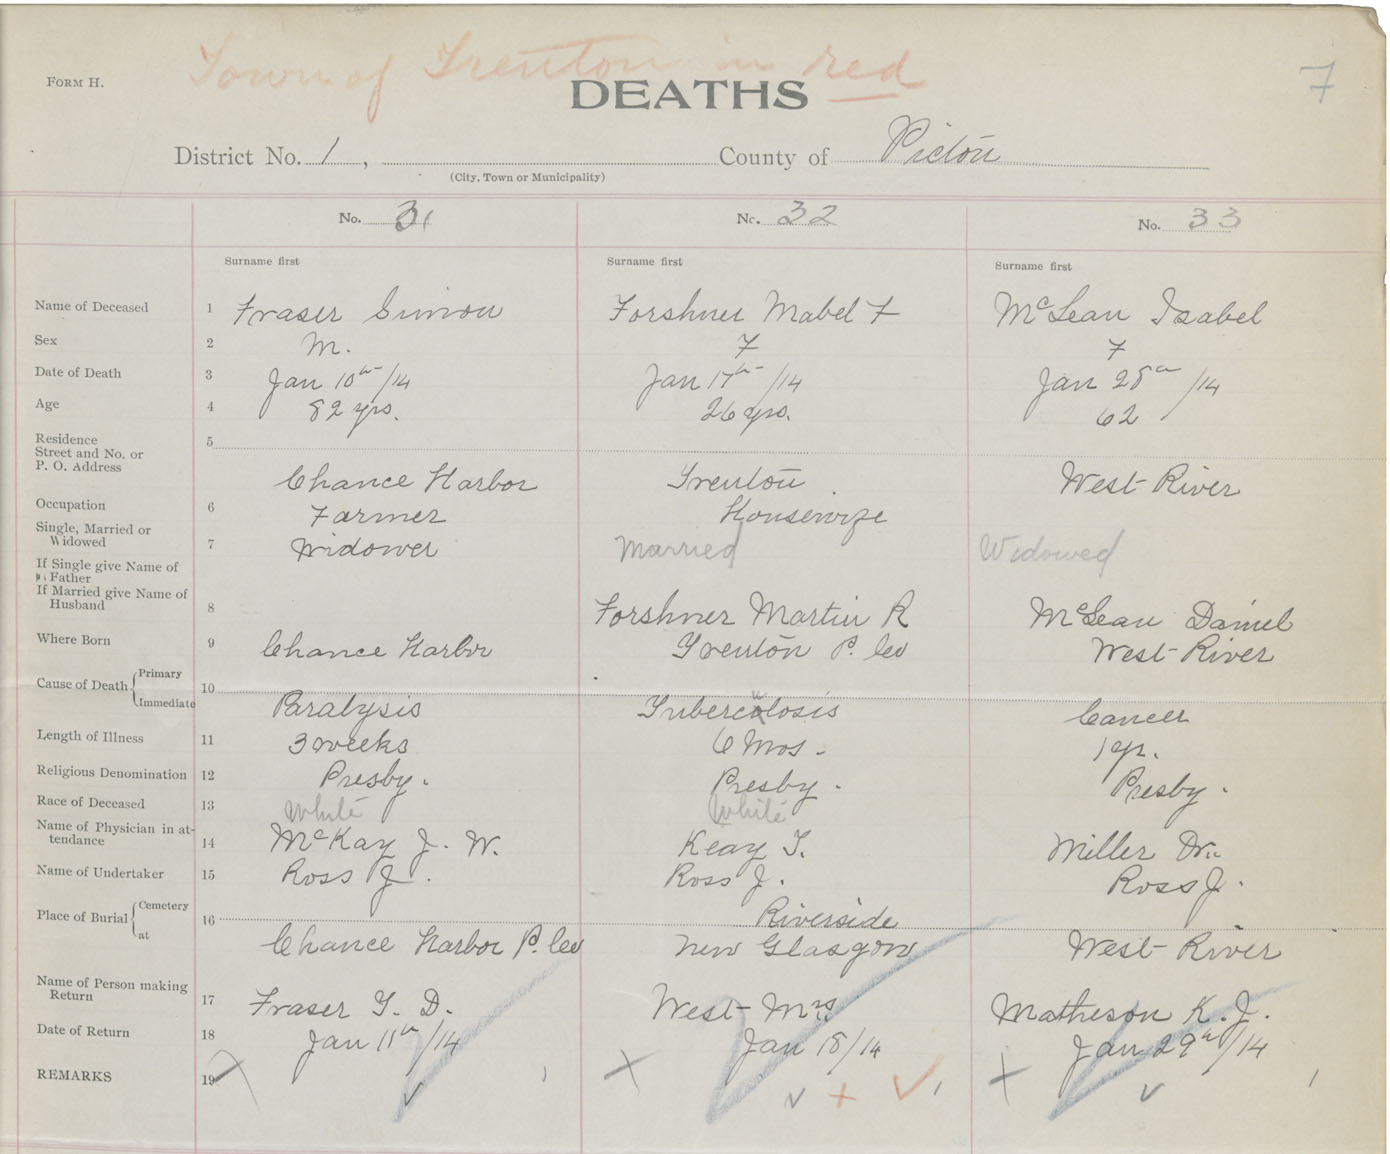 Town of Trenton in red
FORM H.
DEATHS
7
District No. 1 , County of Pictou
(City, Town or Municipality)
No. 31 No. 32 No. 33
Surname first Surname first Surname first
Name of Deceased 1 Fraser Simon Forshner Mabel F McLean Isabel
Sex 2 M. F F
Date of Death 3 Jan 10th/14 Jan 17th/14 Jan 28th/14
Age 4 82 yrs. 26 yrs. 62
Residence 5
Street and No. or
P. O. Address
Chance Harbor Trenton West River
Occupation 6 Farmer Housewife
Single, Married or
Widowed 7 Widower Married Widowed
If Single give Name of
Father
If Married give Name of
Husband 8 Forshner Martin R McLean Daniel
Where Born 9 Chance Harbor Trenton P. Co West River
Cause of Death { Primary 10
Immediate Paralysis Tuberculosis Cancer
Length of Illness 11 3 weeks 6 Mos. 1 yr.
Religious Denomination 12 Presby. Presby. Presby.
Race of Deceased 13 White White
Name of Physician in at-
tendance 14 McKay J. W. Keay T. Miller Dr.
Name of Undertaker 15 Ross J. Ross J. Ross J.
Place of Burial { Cemetery 16 Riverside
at Chance Harbor P. Co New Glasgow West River
Name of Person making
Return 17 Fraser G. D. West Mrs. Matheson K. J.
Date of Return 18 Jan 11th/14 Jan 18/14 Jan 29th/14
REMARKS 19